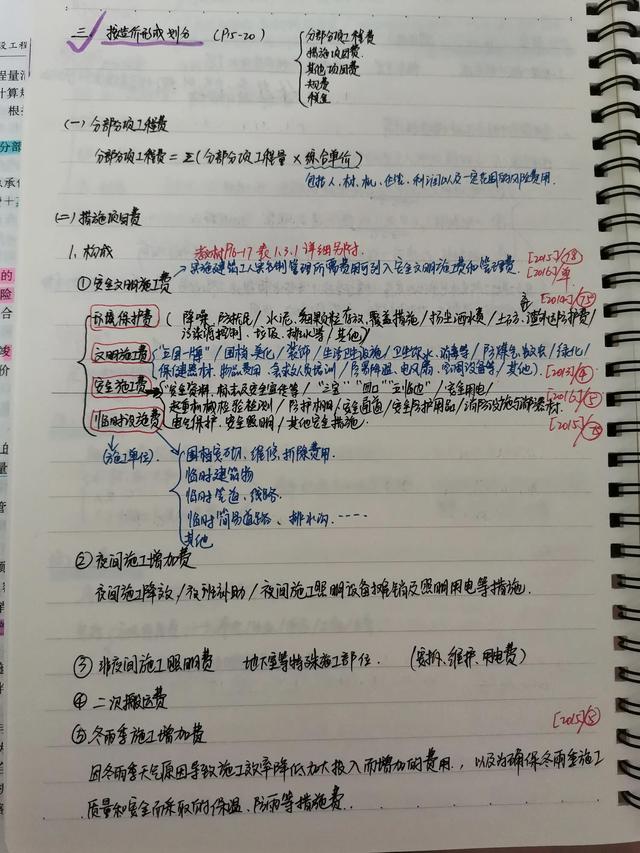 三、按造价形成划分 (P15-20)
分部分项工程费
措施项目费
其他项目费
规费
税金
(一)分部分项工程费
分部分项工程费=Σ(分部分项工程量×综合单价)
包括人、材、机、企管、利润以及一定范围的风险费用.
(二)措施项目费
1.构成 教材P16-17 表1.3.1 详细另附.
[2015]/78
实施建筑工人实名制管理所需费用可列入安全文明施工费和管理费.
[2016]/单
①安全文明施工费
[2014]/75
环境保护费 (降噪、防扰民/水泥、细颗粒存放,覆盖措施/扬尘洒水费/土石方、渣土防护费/
污染源控制、垃圾、排水等/其他)
文明施工费 "五图一牌"/围挡、美化/装饰/生活卫生设施/卫生饮水、消毒等/防煤气、蚊虫/绿化/
保健器材、物品费用、急救人员培训/防暑降温、电风扇、空调设备等/其他).
安全施工费 安全资料、标志及安全宣传等/"三宝""四口""五临边"/安全用电/
起重机械检验检测/防护棚/安全通道/安全防护用品/消防设施与消防器材.
临时设施费 电气保护、安全照明/其他安全措施.
(施工单位).
围挡安砌、维修、拆除费用.
临时建筑物
临时管道、线路.
临时简易道路、排水沟.……
其他
②夜间施工增加费
夜间施工降效/夜班补助/夜间施工照明设备摊销及照明用电等措施.
③非夜间施工照明费 地下室等特殊施工部位. (安拆、维护、用电费)
④二次搬运费
⑤冬雨季施工增加费
因冬雨季天气原因导致施工效率降低加大投入而增加的费用.,以及为确保冬雨季施工
质量和安全而采取的保温、防雨等措施费.